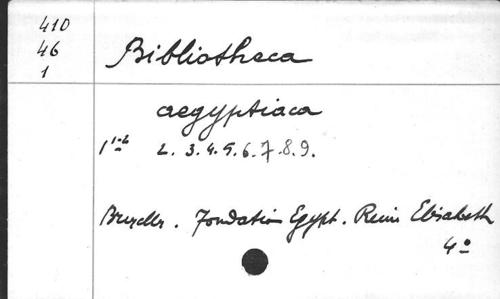 410
46
1
Bibliotheca
aegyptiaca
1 1-2 2. 3. 4. 5. 6. 7. 8. 9.
Bruxelles. Fondation Egypt. Reine Elisabeth
4º